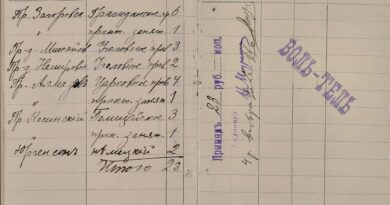 Пр. Загоровск Гражданское пр 6
практ. занят. 1
Пр-д. Михайлов Уголовное прав 3
Пр-д. Немировс Уголовное прав 2
Пр. Алмазов Церковное прав 4
практ. занят. 1
Пр. Косинский Полицейское 3
прак. занят. 1
Юргенсон немецкий 2
Итого 23
Принялъ 23 руб. коп.
ВОЛЬ-ТЕЛЬ